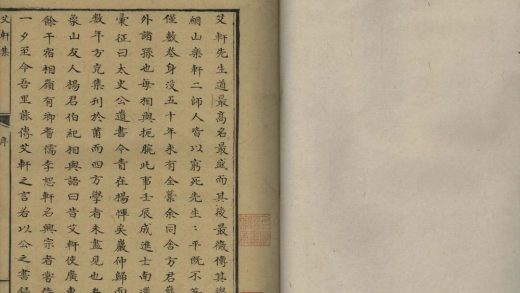 艾軒先生道最高名最而其後最微傳其學
網山樂軒二師人皆以窮死先生平既不
僅數卷身沒五十年未有全藁余同舍方君
外諸孫也每相與扼腕此事壬辰成進士南還
彙征曰太史公遺書今責在楊惲矣嚴仲歸而
數年方克集刊於莆而四方學者未盡見也
象山友人楊君伯紀相與語曰昔艾軒使廣東
餘干宿相嶺有卿耆儒李恕軒名興宗者
一夕至今吾里能傳艾軒之言若以公之書錄
艾軒集
序